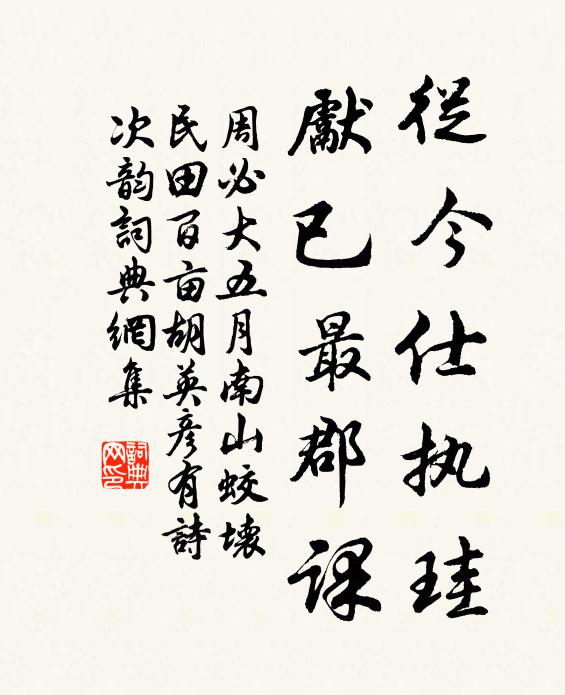 從今仕执珪
獻已最郡课
周必大五月南山蛟壊
民田百亩胡英彦有詩
次韵詞典網集
詞典网印